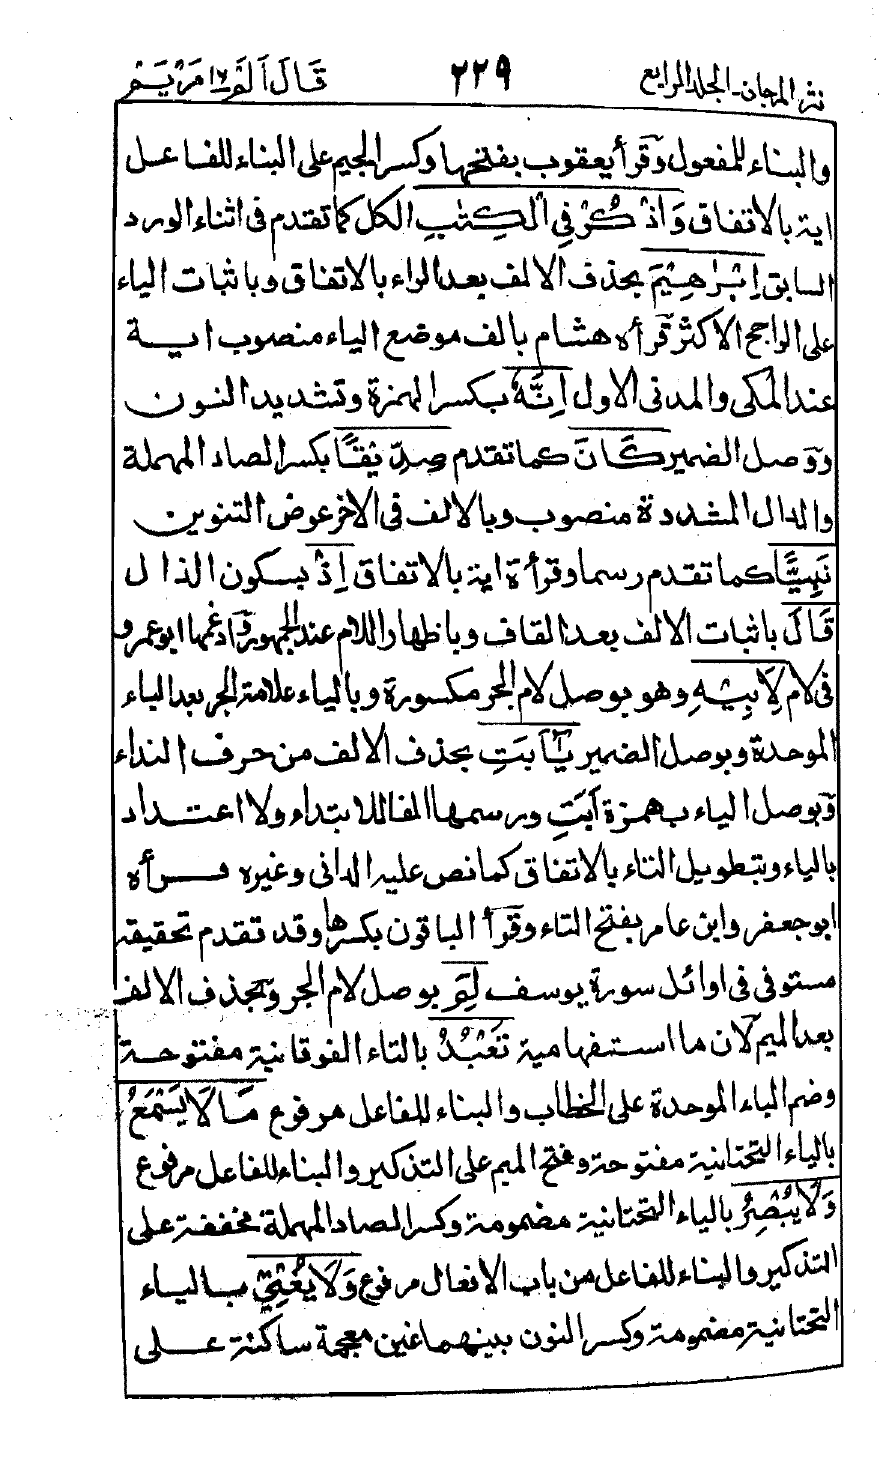 نثر المرجان۔ المجلد الرابع ٢٢٩ قَالَ اَلَمْ ١٦ مَرْيَمْ
والبناء للمفعول وَقرأ يعقوب بفتحها وكسر الجيم على البناء للفاعل
اية بالاتفاق وَاذْكُرْ فِي الْكِتٰبِ الكل كما تقدم فى اثناء الورد
السابق اِبْرٰهِيْمَ بحذف الالف بعد الراء بالاتفاق وباثبات الياء
على الراجح الاكثر قرأه هشام بالف موضع الياء منصوب اية
عند المكى والمدنى الاول اِنَّهٗ بكسر الهمزة وتشديد النون
ووصل الضمير كَانَ كما تقدم صِدِّيْقًا بكسر الصاد المهملة
والدال المشددة منصوب وبالالف فى الاخر عوض التنوين
نَبِيًّا كما تقدم رسما وقرأة اية بالاتفاق اِذْ بسكون الذال
قَالَ باثبات الالف بعد القاف وباظهار اللام عند الجمهور وادغمها ابو عمرو
فى لام لِاَبِيْهِ وهو بوصل لام الجر مكسورة وبالياء علامة الجر بعد الباء
الموحدة وبوصل الضمير يٰٓاَبَتِ بحذف الالف من حرف النداء
وبوصل الياء ب همزة اَبَتِ ورسمها الفا للابتداء ولا اعتداد
بالياء وبتطويل التاء بالاتفاق كما نص عليه الدانى وغيره قرأه
ابو جعفر وابن عامر بفتح التاء وقرأ الباقون بكسرها وقد تقدم تحقيقه
مستوفى فى اوائل سورة يوسف لِمَ بوصل لام الجر وبحذف الالف
بعد الميم لان ما استفهامية تَعْبُدُ بالتاء الفوقانية مفتوحة
وضم الباء الموحدة على الخطاب والبناء للفاعل مرفوع مَا لَا يَسْمَعُ
بالياء التحتانية مفتوحة وفتح الميم على التذكير والبناء للفاعل مرفوع
وَلَا يُبْصِرُ بالياء التحتانية مضمومة وكسر الصاد المهملة مخففة على
التذكير والبناء للفاعل من باب الافعال مرفوع وَلَا يُغْنِيْ بالياء
التحتانية مضمومة وكسر النون بينهما غين معجمة ساكنة على